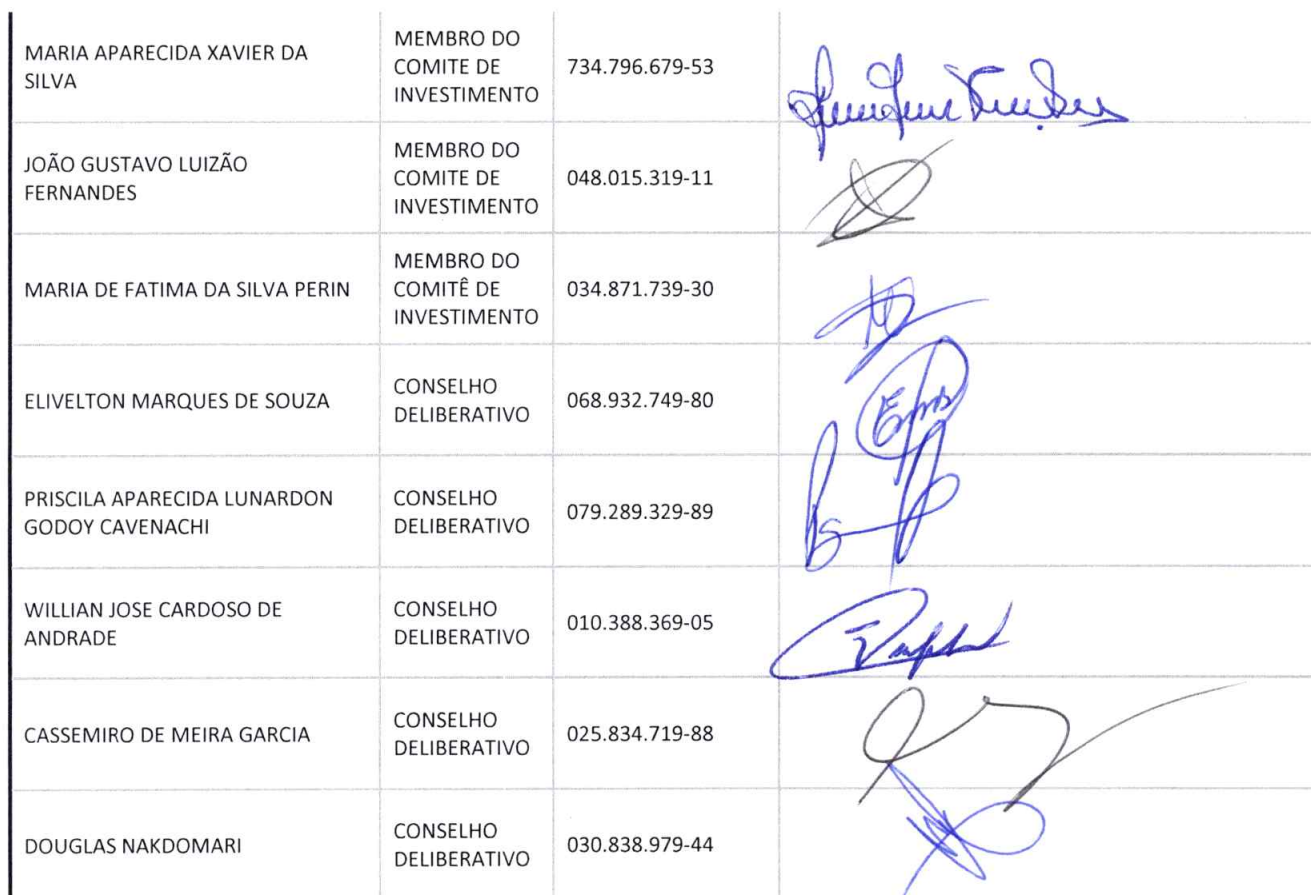 MARIA APARECIDA XAVIER DA
SILVA
MEMBRO DO
COMITE DE
INVESTIMENTO
734.796.679-53
JOÃO GUSTAVO LUIZÃO
FERNANDES
MEMBRO DO
COMITE DE
INVESTIMENTO
048.015.319-11
MARIA DE FATIMA DA SILVA PERIN
MEMBRO DO
COMITÊ DE
INVESTIMENTO
034.871.739-30
ELIVELTON MARQUES DE SOUZA
CONSELHO
DELIBERATIVO
068.932.749-80
PRISCILA APARECIDA LUNARDON
GODOY CAVENACHI
CONSELHO
DELIBERATIVO
079.289.329-89
WILLIAN JOSE CARDOSO DE
ANDRADE
CONSELHO
DELIBERATIVO
010.388.369-05
CASSEMIRO DE MEIRA GARCIA
CONSELHO
DELIBERATIVO
025.834.719-88
DOUGLAS NAKDOMARI
CONSELHO
DELIBERATIVO
030.838.979-44